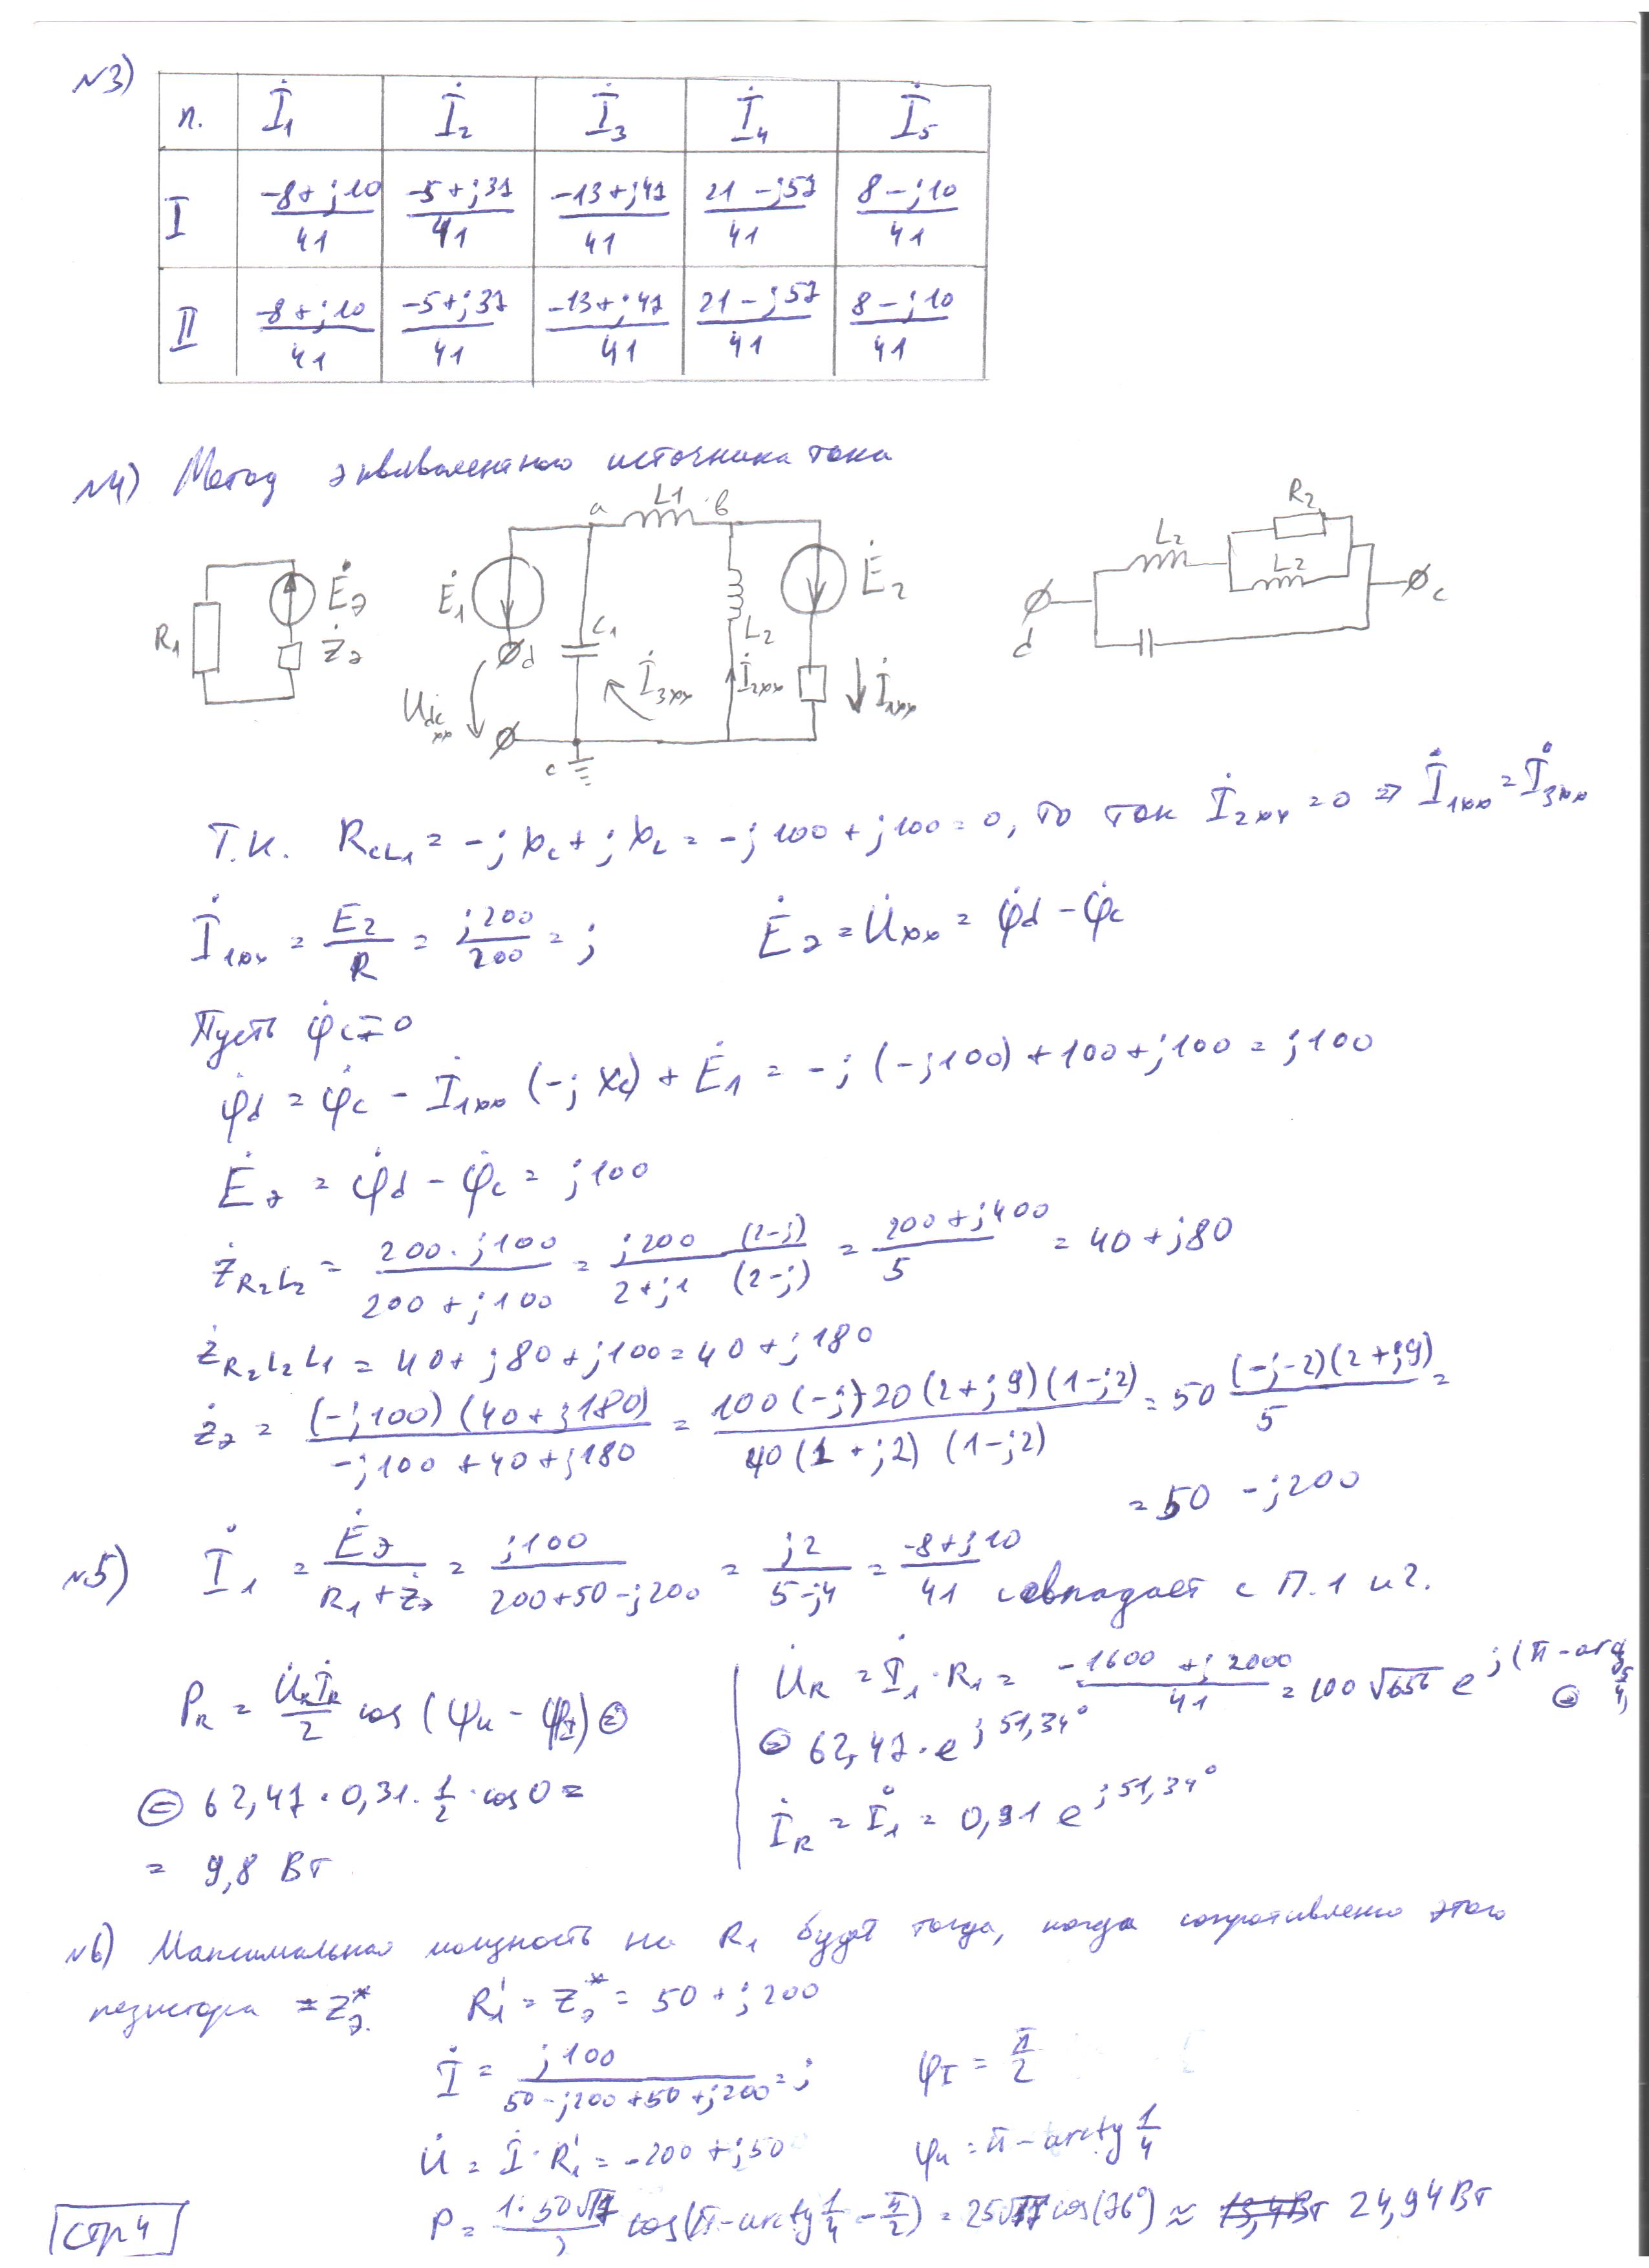 №3)
п. İ₁ İ₂ İ₃ İ₄ İ₅
I (-8+j10)/41 (-5+j37)/41 (-13+j47)/41 (21-j57)/41 (8-j10)/41
II (-8+j10)/41 (-5+j37)/41 (-13+j47)/41 (21-j57)/41 (8-j10)/41
№4) Метод эквивалентного источника тока
R₁ Ė_э Ż_э
Ė₁ d U̇_dc xx a L1 b C1 İ₃xx L₂ İ₂xx Ė₂ İ₁xx c
d L₂ R₂ L2 c
Т.к. R_CL₁ = -jx_c + jx_L = -j100 + j100 = 0, то ток İ₂xx = 0 ⇒ İ₁xx = İ₃xx
İ₁xx = E₂/R = j200/200 = j Ė_э = U̇xx = φ̇d - φ̇c
Пусть φ̇c = 0
φ̇d = φ̇c - İ₁xx (-jx_c) + Ė₁ = -j(-j100) + 100 + j100 = j100
Ė_э = φ̇d - φ̇c = j100
Ż_R₂L₂ = (200·j100)/(200+j100) = (j200 (2-j))/(2+j1 (2-j)) = (200+j400)/5 = 40+j80
Ż_R₂L₂L₁ = 40+j80+j100 = 40+j180
Ż_э = ((-j100)(40+j180))/(-j100+40+j180) = (100(-j)20(2+j9)(1-j2))/(40(1+j2)(1-j2)) = 50 ((-j-2)(2+j9))/5 =
= 50 - j200
№5) İ₁ = Ė_э/(R₁+Ż_э) = j100/(200+50-j200) = j2/(5-j4) = (-8+j10)/41 совпадает с п.1 и 2.
P_R = (U̇_R İ_R)/2 cos(φu - φI) ⊜
⊜ 62,47·0,31·1/2·cos0 =
= 9,8 Вт
U̇_R = İ₁·R₁ = (-1600+j2000)/41 = 100√656 e^j(π-arctg 5/4) ⊜
⊜ 62,47·e^j51,34°
İ_R = İ₁ = 0,31 e^j51,34°
№6) Максимальная мощность на R₁ будет тогда, когда сопротивление этого
резистора = Z_э* R₁' = Z_э* = 50+j200
İ = j100/(50-j200+50+j200) = j φ_I = π/2
U̇ = İ·R₁' = -200+j50 φu = π - arctg 1/4
P = (1·50√17)/2 cos(π-arctg 1/4 - π/2) = 25√17 cos(76°) ≈ 24,94 Вт
стр 4